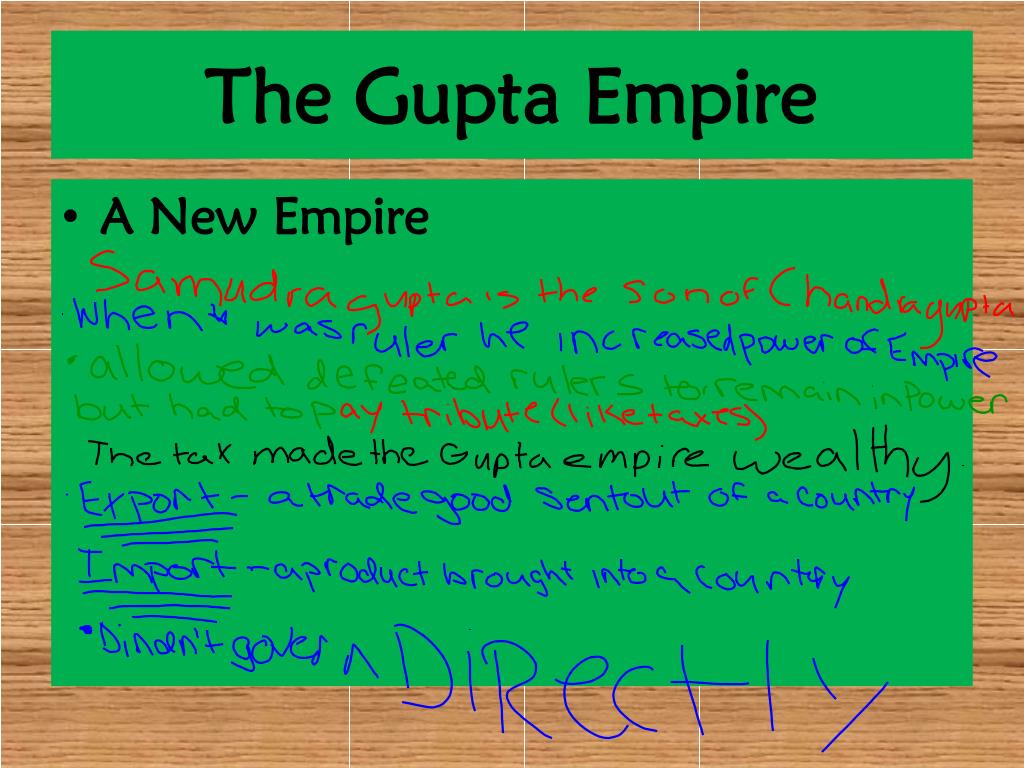 The Gupta Empire
• A New Empire
Samudragupta is the son of Chandragupta
When was ruler he increased power of Empire
• allowed defeated rulers to remain in Power
but had to pay tribute (like taxes)
The tax made the Gupta empire wealthy.
Export - a trade good sent out of a country
Import - a product brought into a country
• Dindn't govern DIRectly